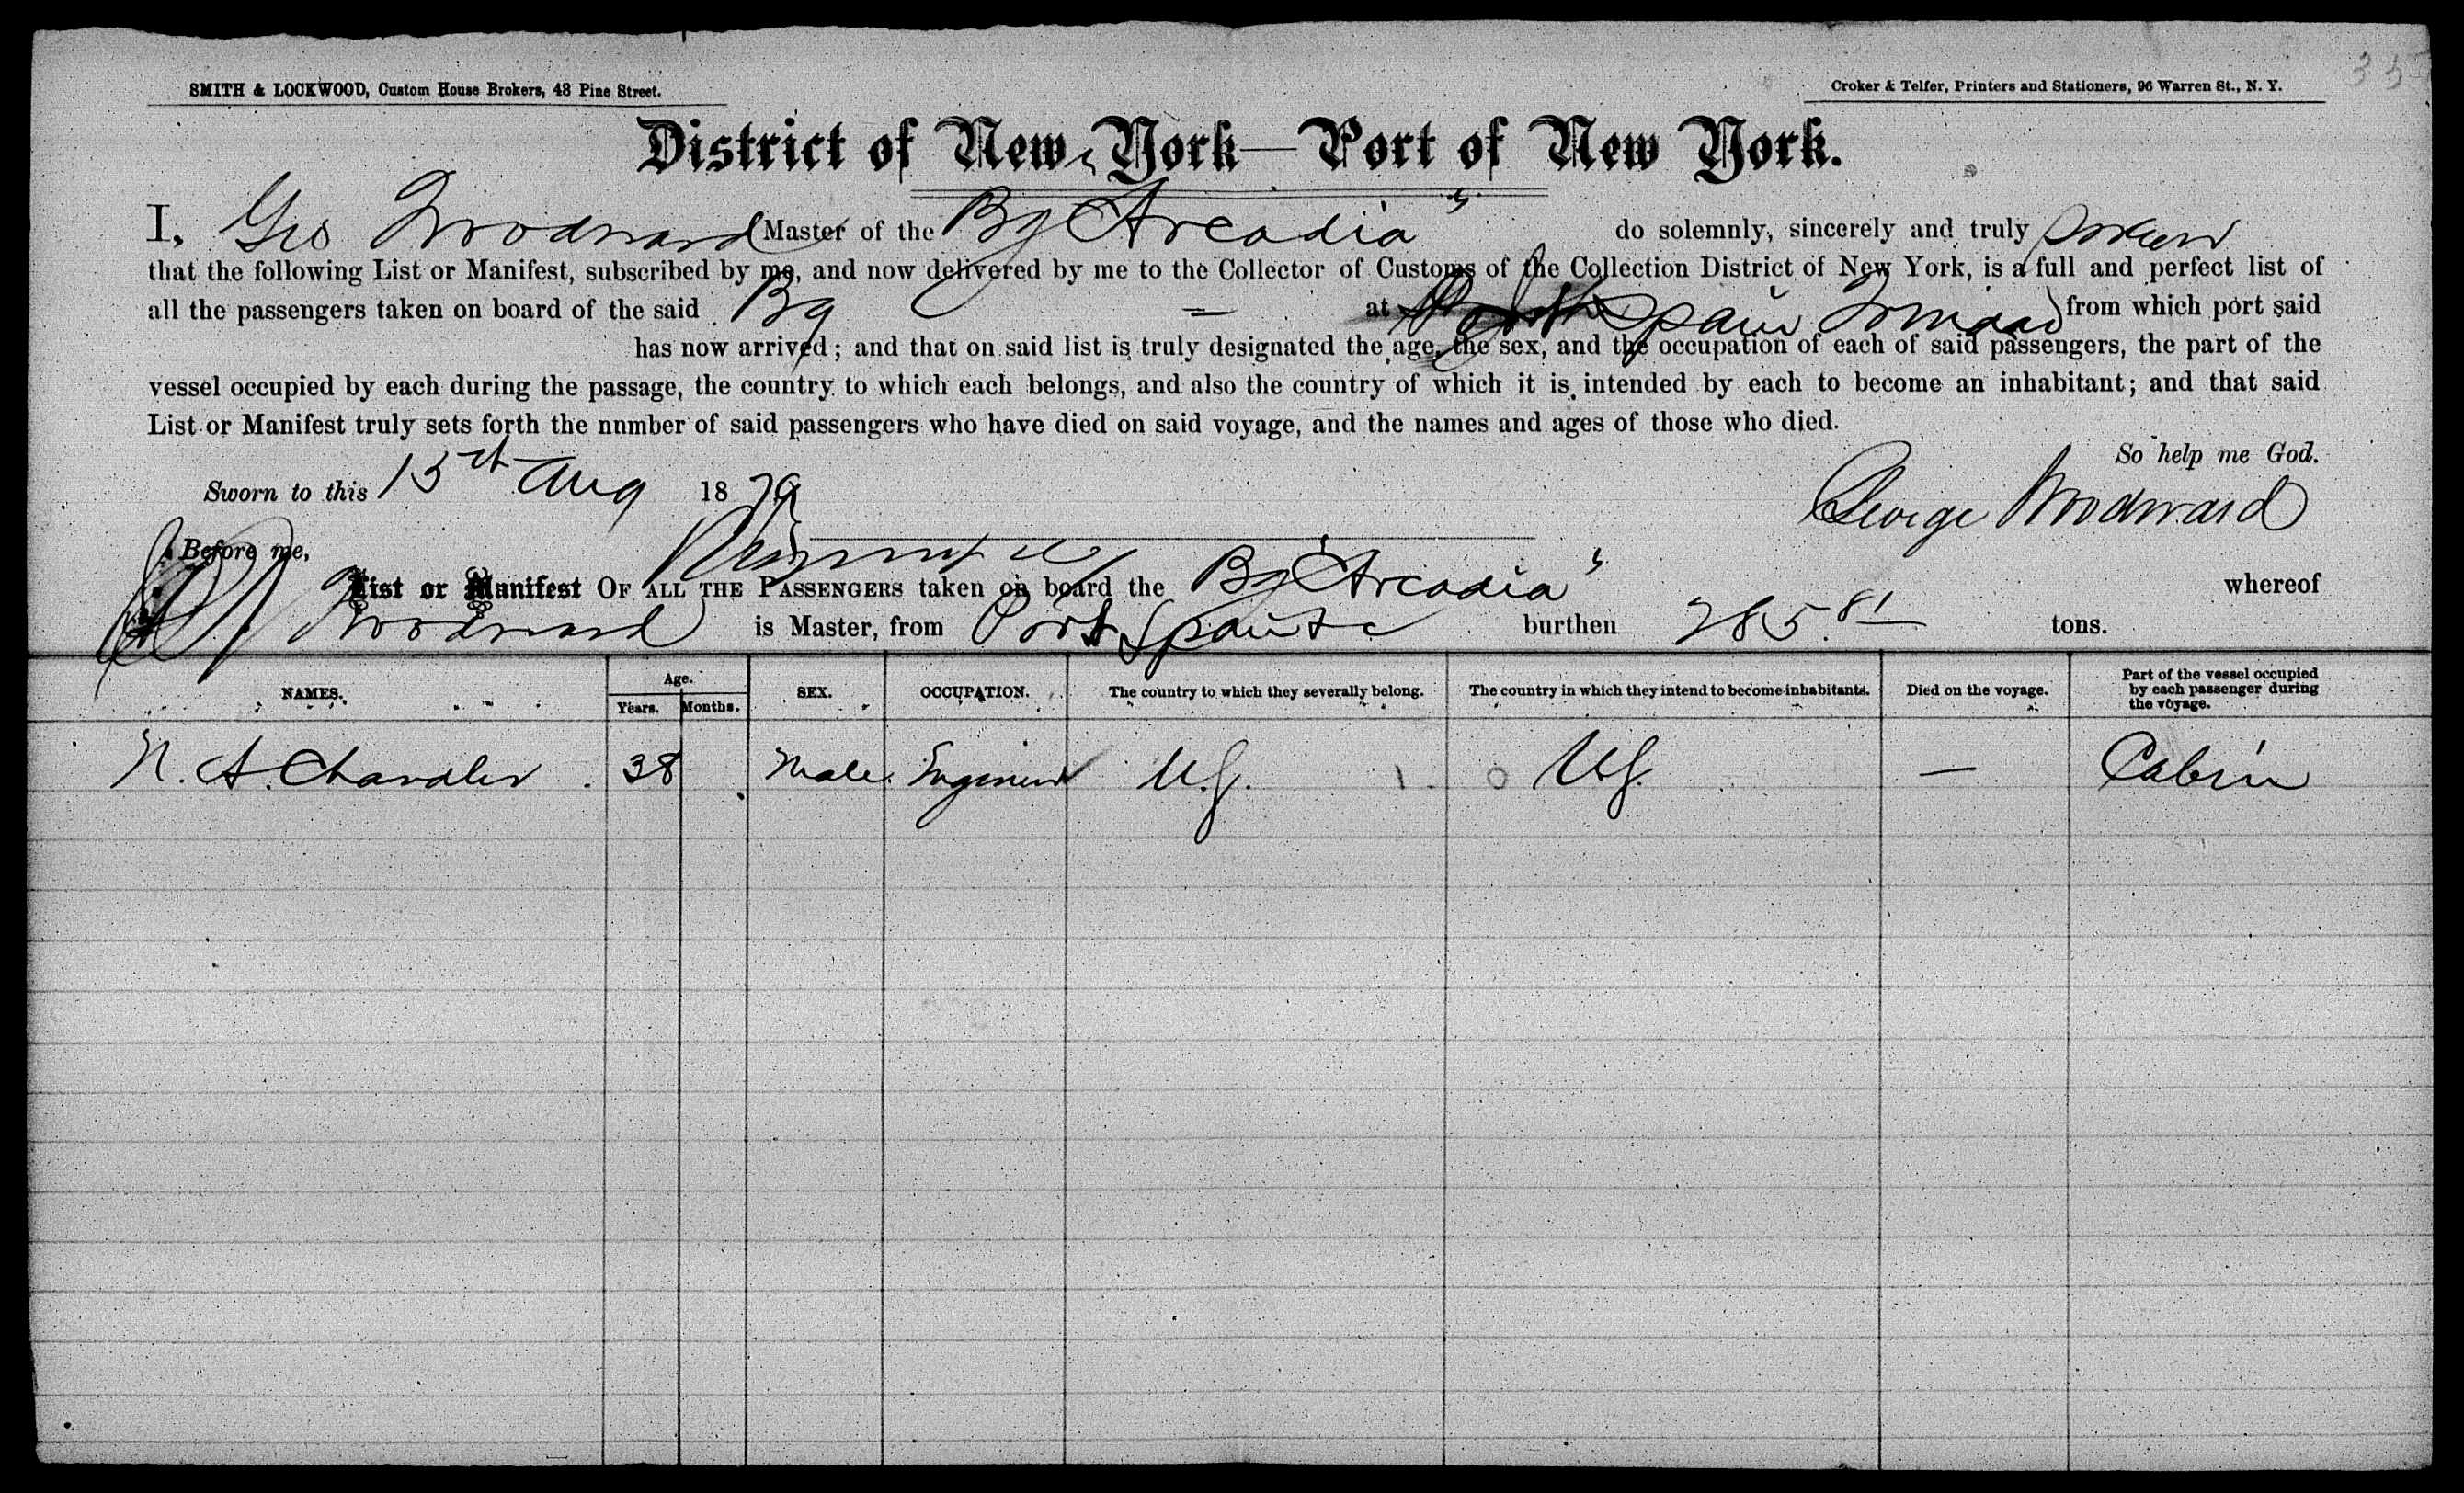 35
SMITH & LOCKWOOD, Custom House Brokers, 48 Pine Street.
Croker & Telfer, Printers and Stationers, 96 Warren St., N. Y.
District of New York—Port of New York.
I, Geo Woodward Master of the Bg "Arcadia" do solemnly, sincerely and truly swear
that the following List or Manifest, subscribed by me, and now delivered by me to the Collector of Customs of the Collection District of New York, is a full and perfect list of
all the passengers taken on board of the said Bg — at Port Spain Trinidad from which port said
has now arrived; and that on said list is truly designated the age, the sex, and the occupation of each of said passengers, the part of the
vessel occupied by each during the passage, the country to which each belongs, and also the country of which it is intended by each to become an inhabitant; and that said
List or Manifest truly sets forth the nnmber of said passengers who have died on said voyage, and the names and ages of those who died.
So help me God.
Sworn to this 15th Aug 1879
George Woodward
Before me,
List or Manifest OF ALL THE PASSENGERS taken on board the Bg "Arcadia" whereof
Woodward is Master, from Port Spain burthen 285.81 tons.
NAMES. Age. Years. Months. SEX. OCCUPATION. The country to which they severally belong. The country in which they intend to become inhabitants. Died on the voyage. Part of the vessel occupied by each passenger during the voyage.
N. A. Chandler 38 Male Engineer U.S. 1 0 U.S. — Cabin